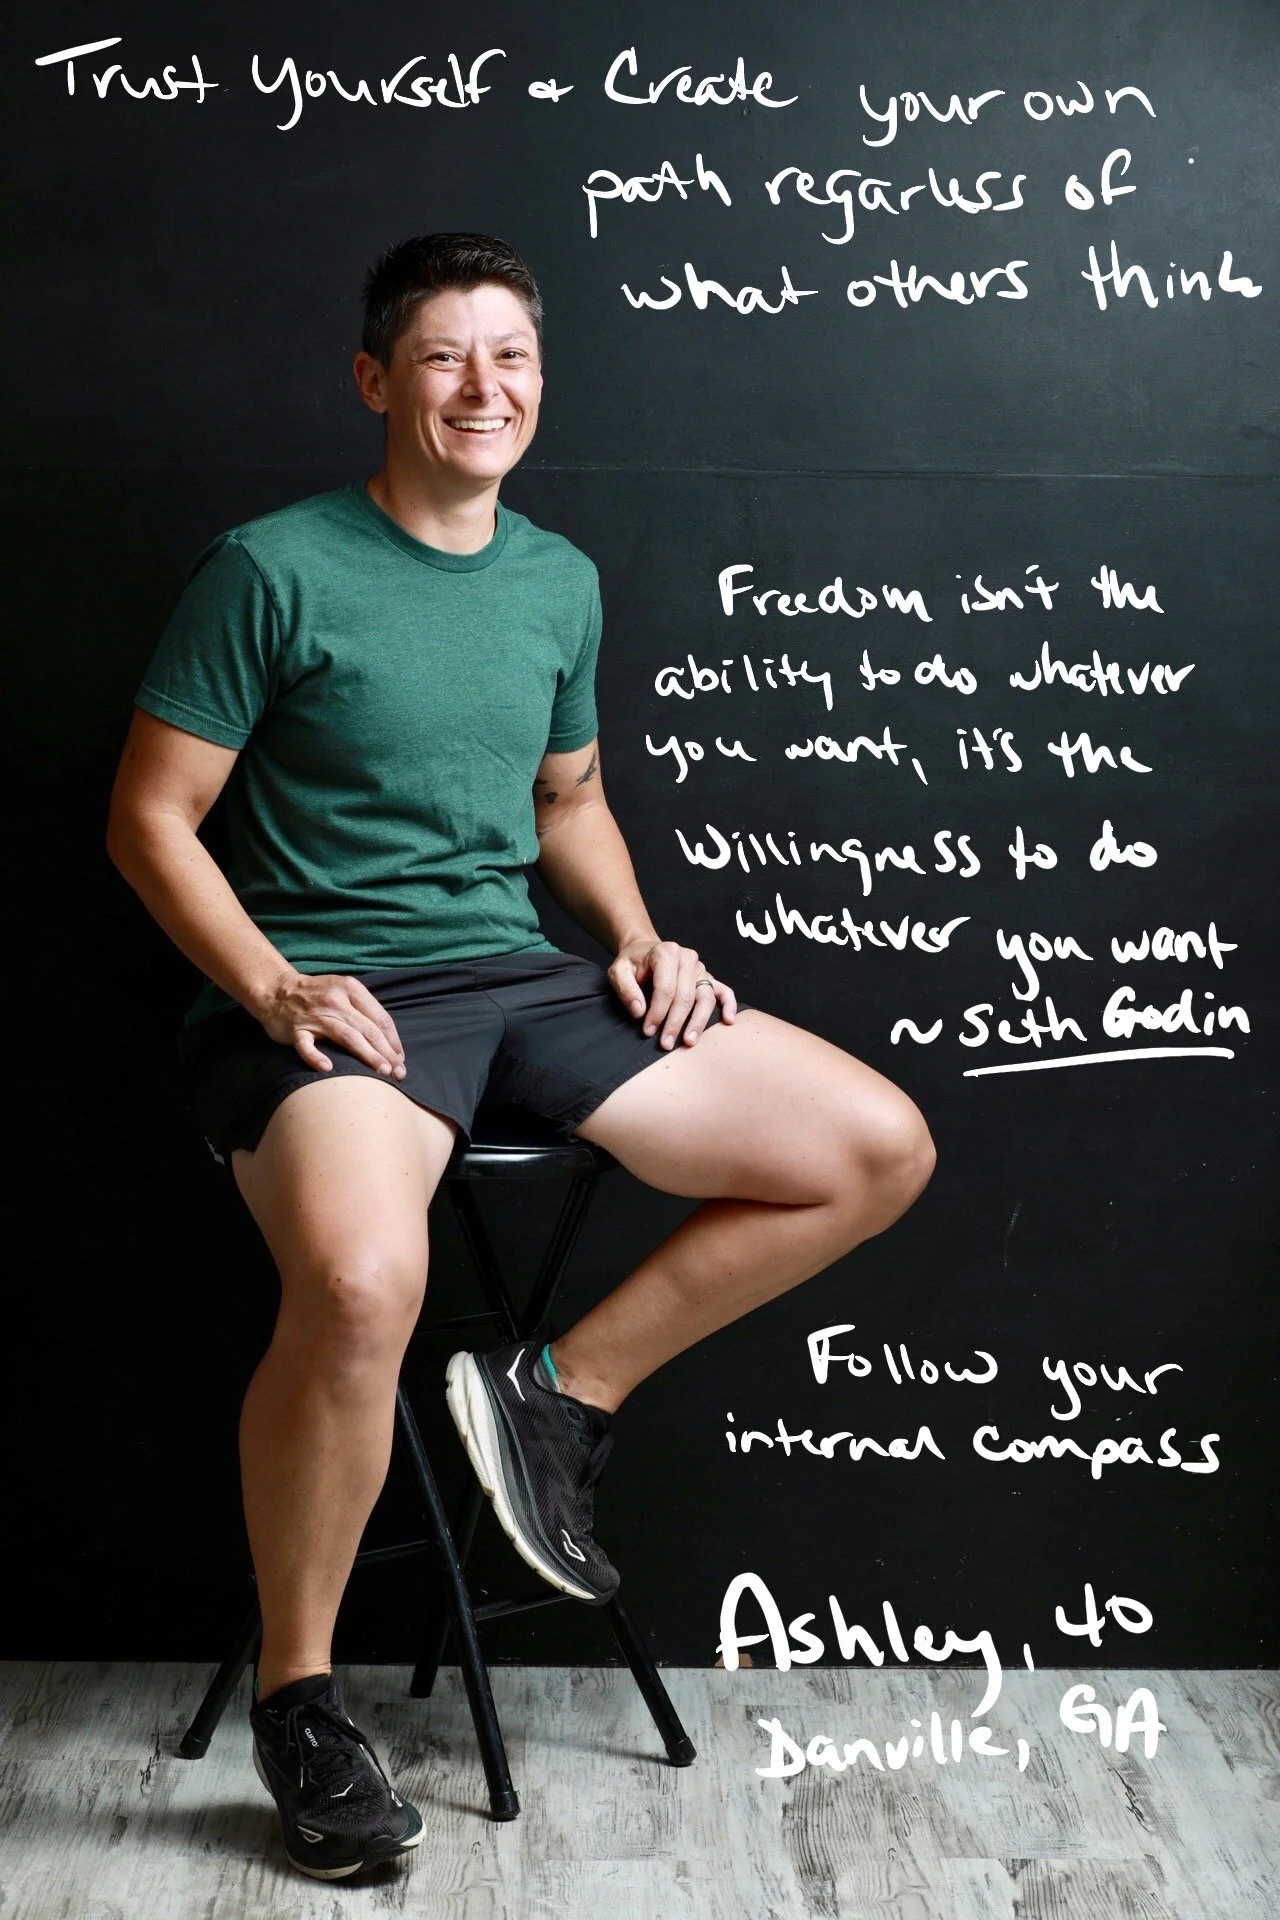 Trust Yourself & Create your own
path regarless of
what others think
Freedom isn't the
ability to do whatever
you want, it's the
Willingness to do
whatever you want
~ Seth Godin
Follow your
internal compass
Ashley, 40
Danville, GA
CLIFTON